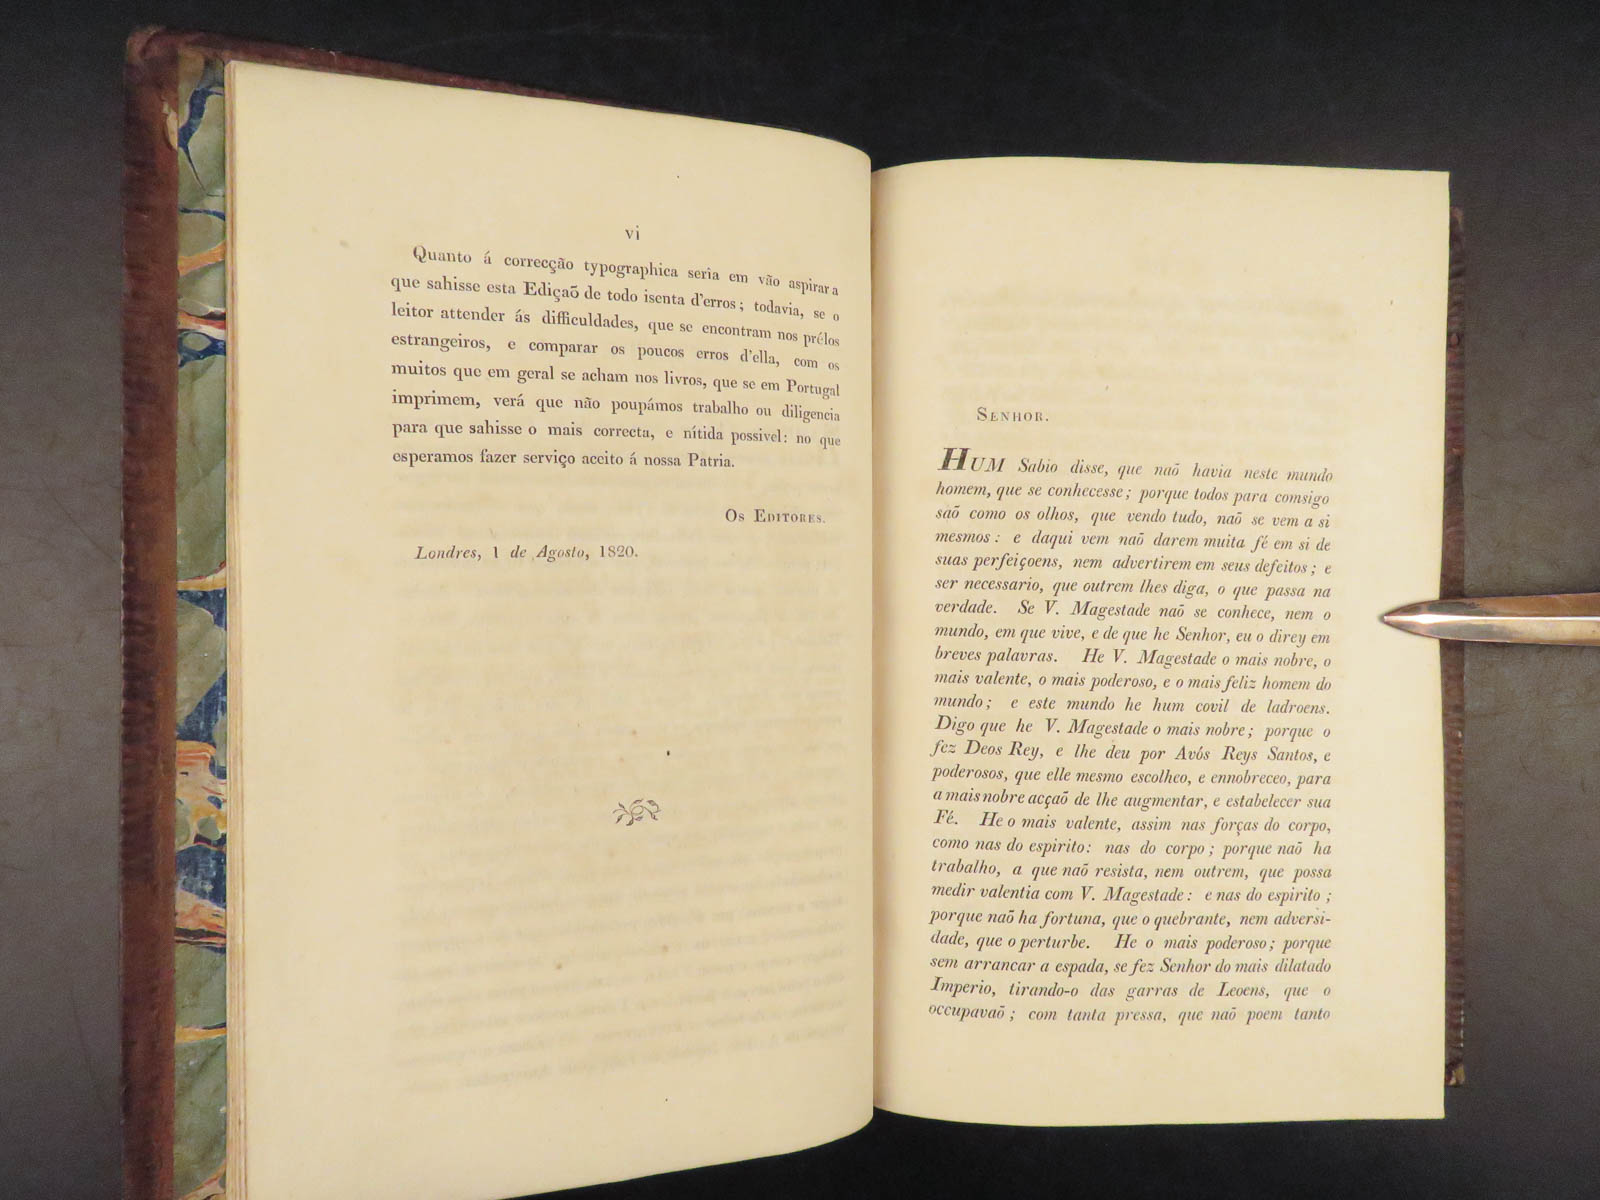 vi
Quanto á correcção typographica seria em vão aspirar a
que sahisse esta Ediçaõ de todo isenta d'erros; todavia, se o
leitor attender ás difficuldades, que se encontram nos prélos
estrangeiros, e comparar os poucos erros d'ella, com os
muitos que em geral se acham nos livros, que se em Portugal
imprimem, verá que não poupámos trabalho ou diligencia
para que sahisse o mais correcta, e nítida possivel: no que
esperamos fazer serviço acceito á nossa Patria.
Os Editores.
Londres, 1 de Agosto, 1820.
Senhor.
Hum Sabio disse, que naõ havia neste mundo
homem, que se conhecesse; porque todos para comsigo
saõ como os olhos, que vendo tudo, naõ se vem a si
mesmos: e daqui vem naõ darem muita fé em si de
suas perfeiçoens, nem advertirem em seus defeitos; e
ser necessario, que outrem lhes diga, o que passa na
verdade. Se V. Magestade naõ se conhece, nem o
mundo, em que vive, e de que he Senhor, eu o direy em
breves palavras. He V. Magestade o mais nobre, o
mais valente, o mais poderoso, e o mais feliz homem do
mundo; e este mundo he hum covil de ladroens.
Digo que he V. Magestade o mais nobre; porque o
fez Deos Rey, e lhe deu por Avós Reys Santos, e
poderosos, que elle mesmo escolheo, e ennobreceo, para
a mais nobre acçaõ de lhe augmentar, e estabelecer sua
Fé. He o mais valente, assim nas forças do corpo,
como nas do espirito: nas do corpo; porque naõ ha
trabalho, a que naõ resista, nem outrem, que possa
medir valentia com V. Magestade: e nas do espirito;
porque naõ ha fortuna, que o quebrante, nem adversi-
dade, que o perturbe. He o mais poderoso; porque
sem arrancar a espada, se fez Senhor do mais dilatado
Imperio, tirando-o das garras de Leoens, que o
occupavaõ; com tanta pressa, que naõ poem tanto